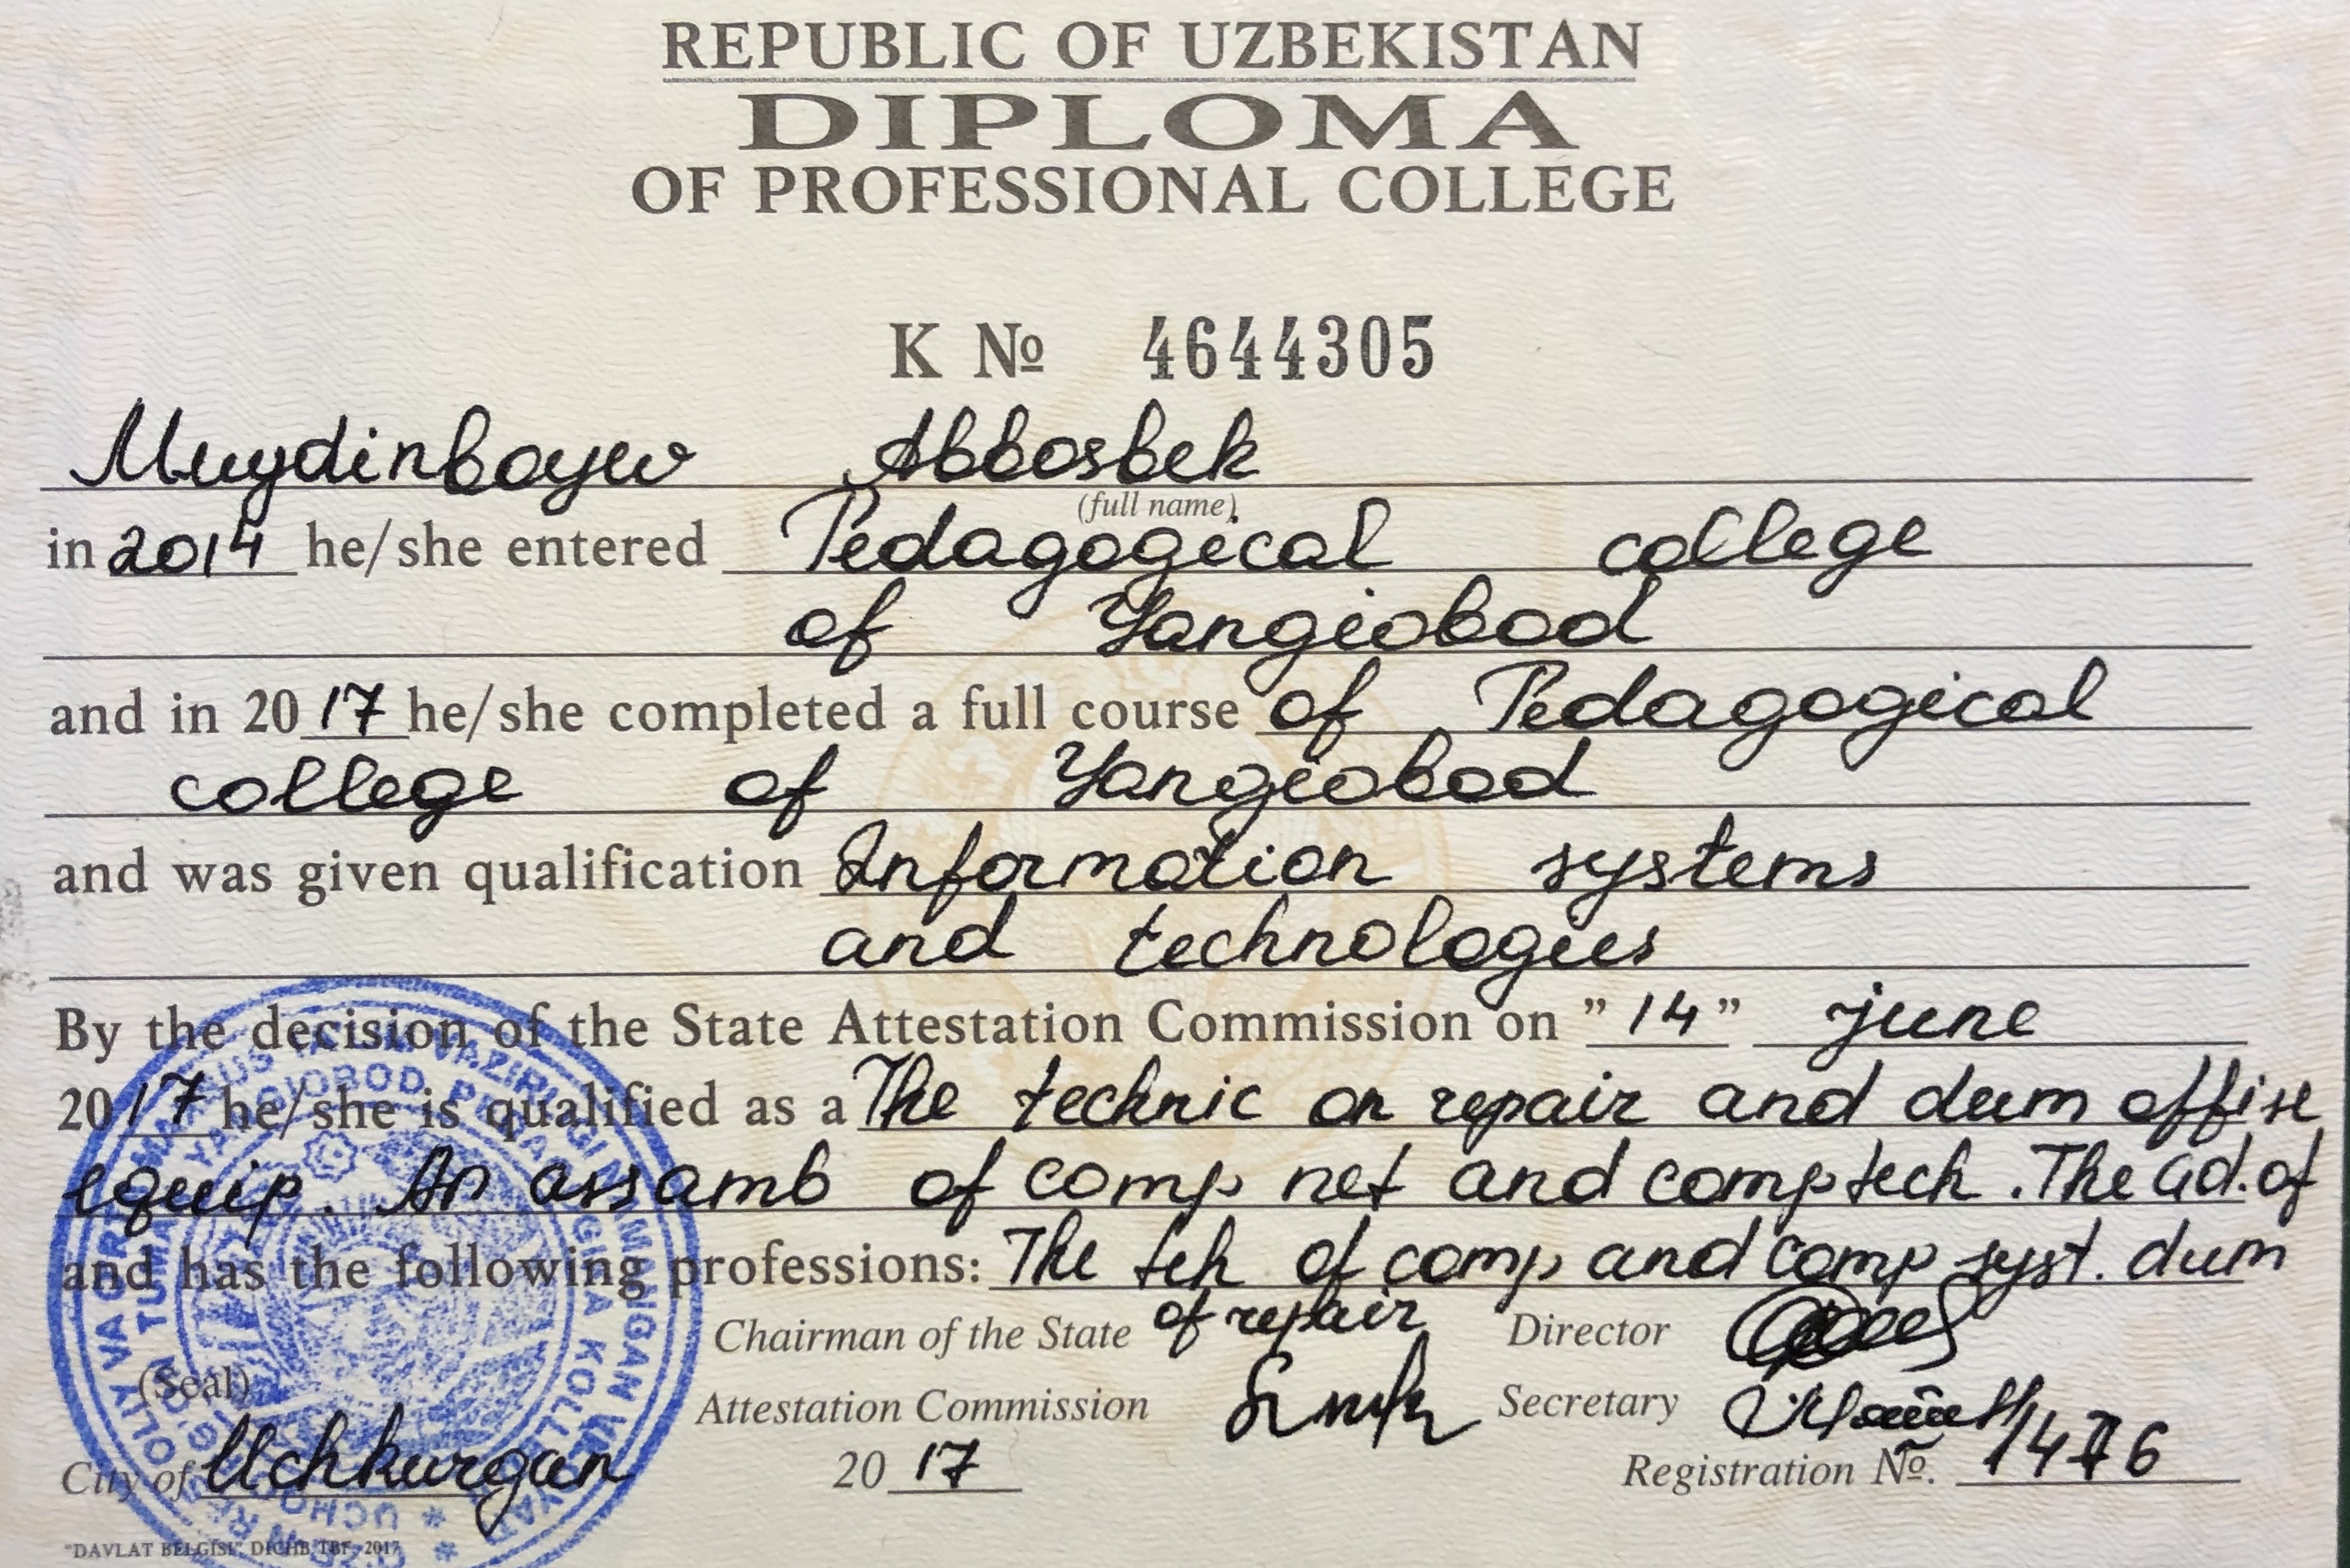 REPUBLIC OF UZBEKISTAN
DIPLOMA
OF PROFESSIONAL COLLEGE
K № 4644305
Muydinboyev Abbosbek
(full name)
in 2014 he/she entered Pedagogical college
of Yangiobod
and in 2017 he/she completed a full course of Pedagogical
college of Yangiobod
and was given qualification Information systems
and technologies
By the decision of the State Attestation Commission on "14" june
2017 he/she is qualified as a The technic on repair and dum offise
equip. An assamb of comp net and comp tech. The ad. of
and has the following professions: The teh of comp and comp syst. dum
of repair
Chairman of the State Director
(Seal)
Attestation Commission Secretary
City of Uchkurgan 2017 Registration №. 1476
"DAVLAT BELGISI", DICHB, TBF, 2017